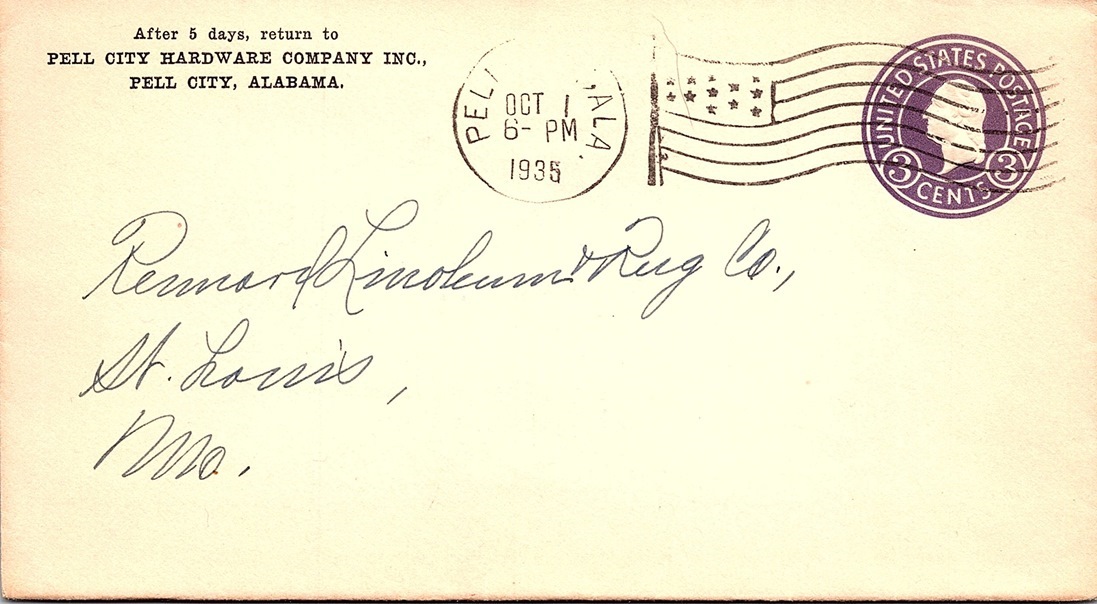 After 5 days, return to
PELL CITY HARDWARE COMPANY INC.,
PELL CITY, ALABAMA.
PELL ALA.
OCT 1
6- PM
1935
UNITED STATES POSTAGE
3 CENTS 3
Rennard Linoleum & Rug Co.,
St. Louis,
Mo.